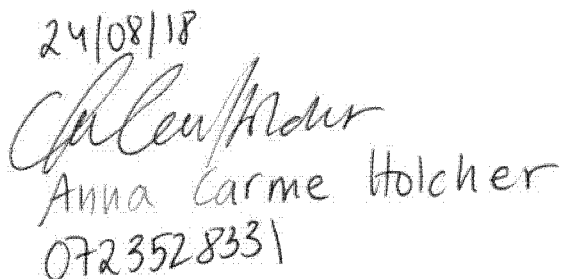 24/08/18
Anna Carme Holcher
0723528331